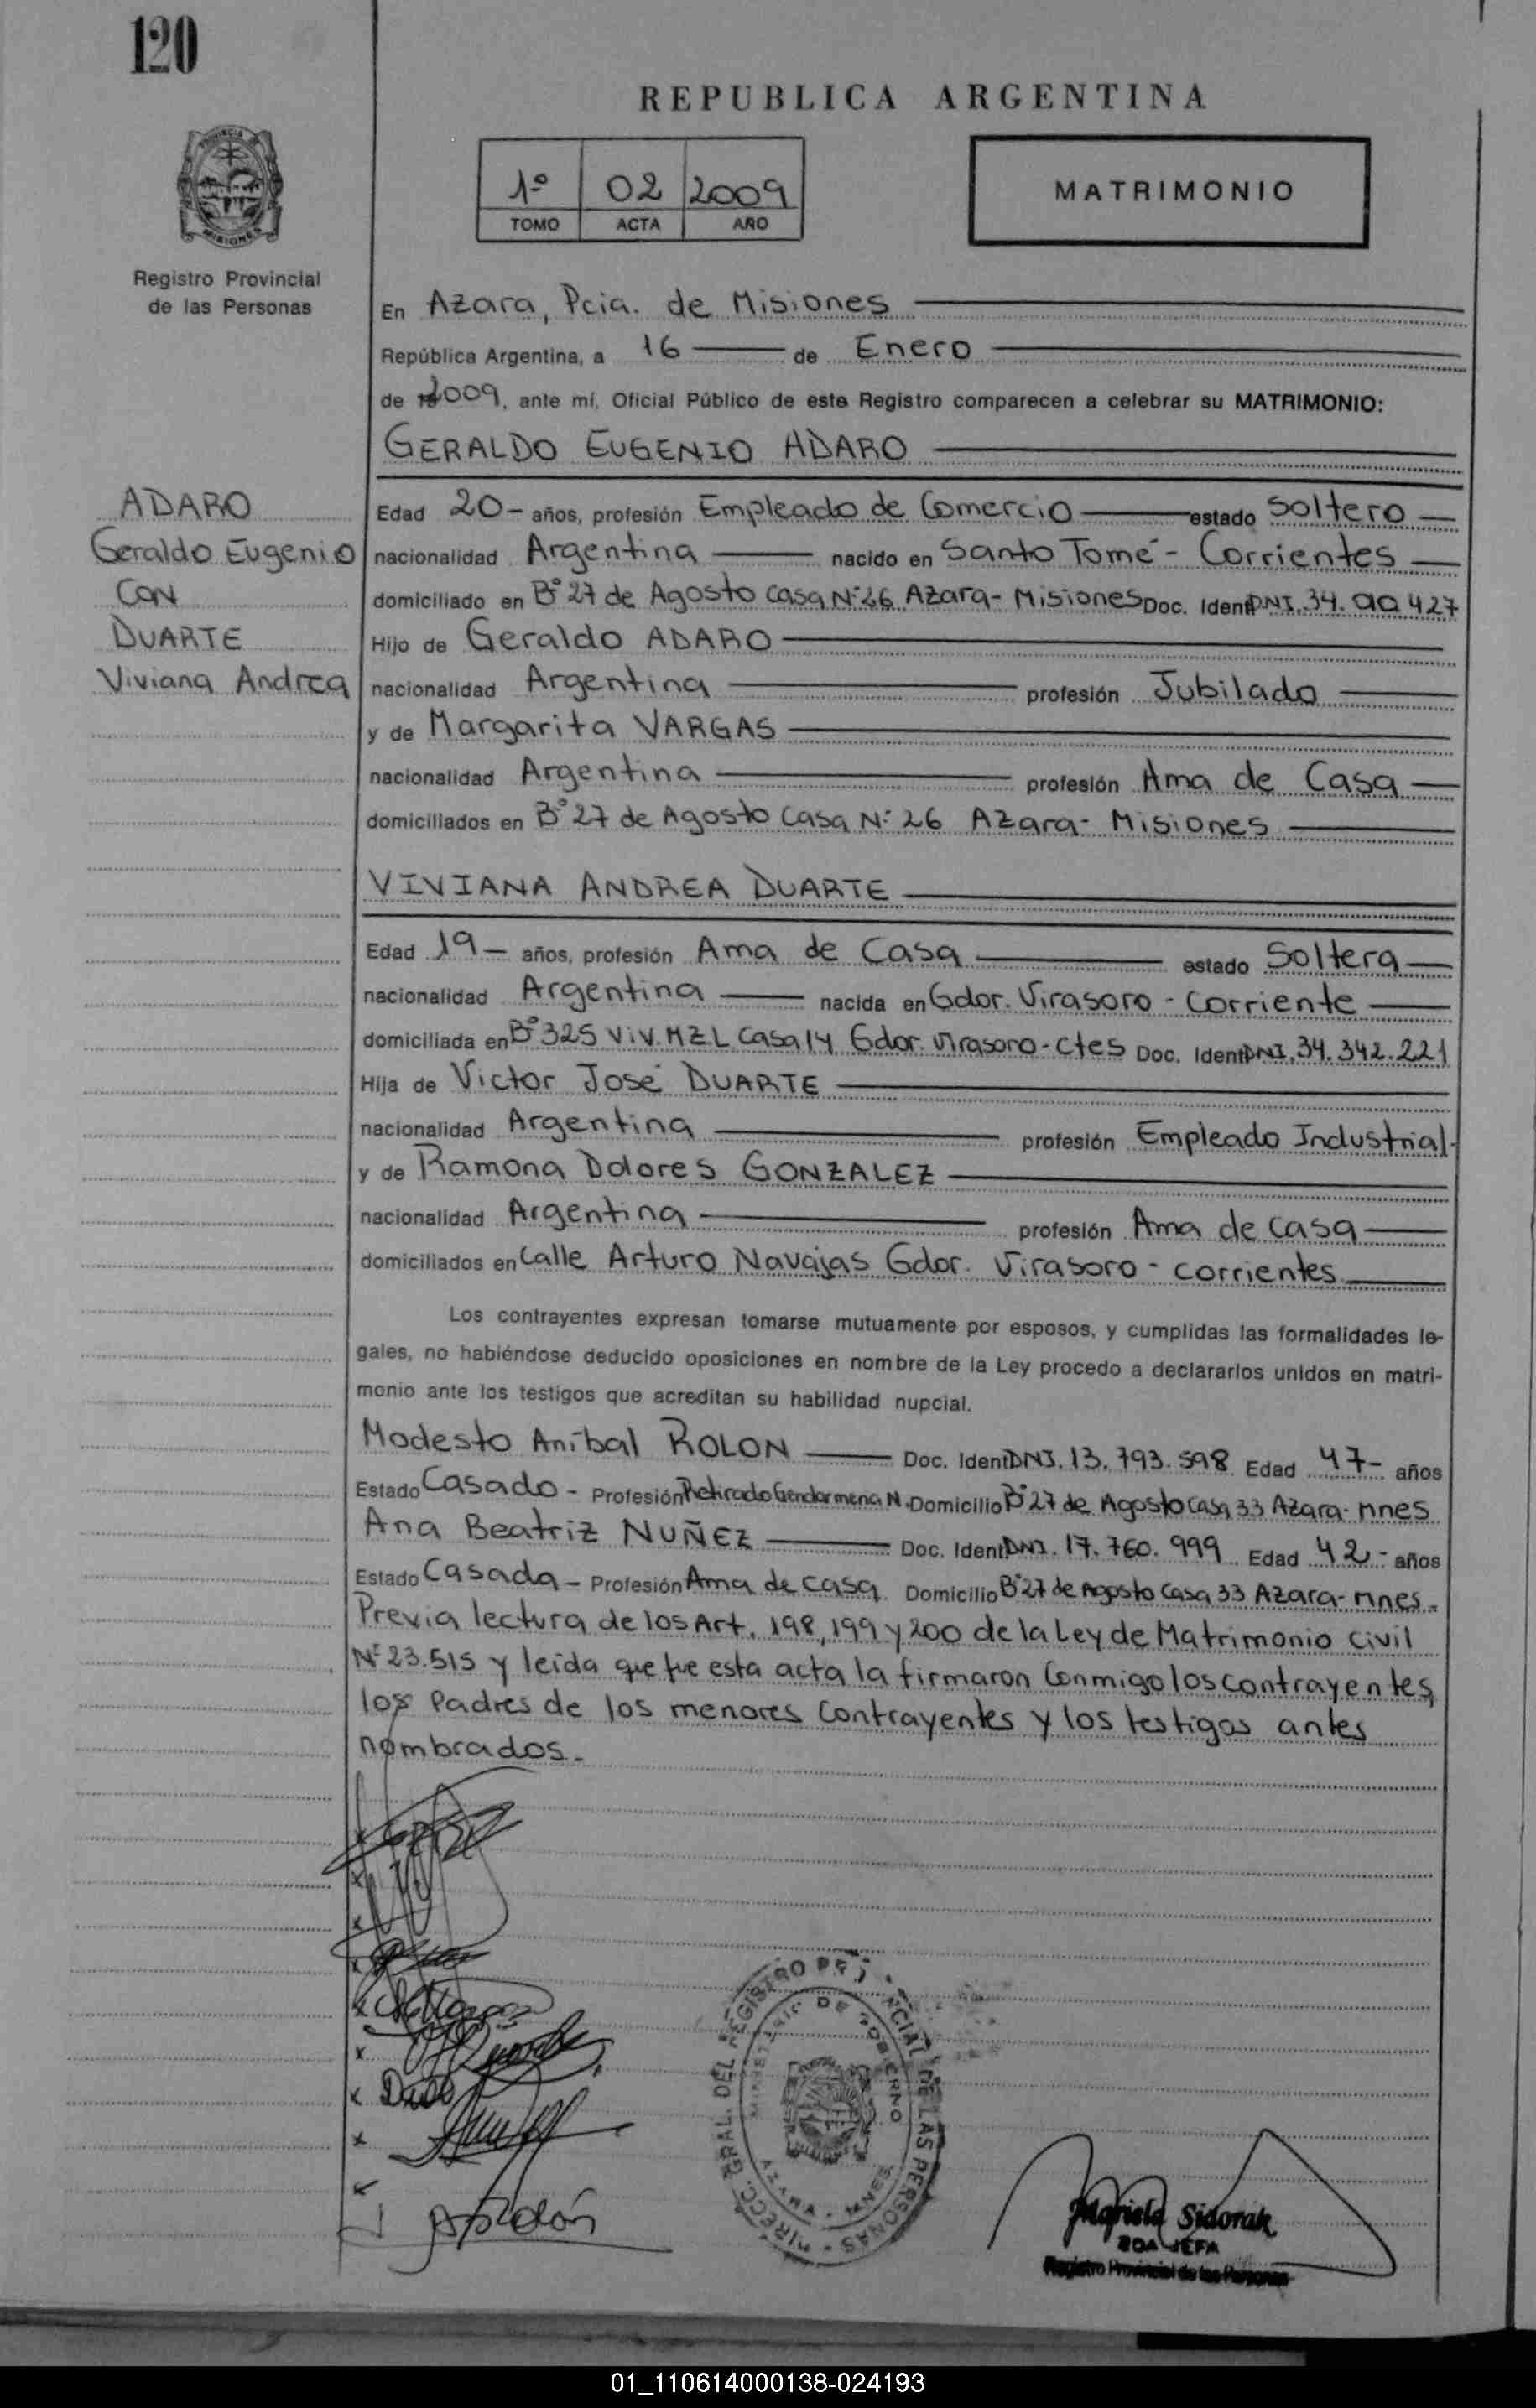 120
REPUBLICA ARGENTINA
1º 02 2009
TOMO ACTA AÑO
MATRIMONIO
PROVINCIA
MISIONES
Registro Provincial
de las Personas
En Azara, Pcia. de Misiones
República Argentina, a 16 de Enero
de 2009, ante mí, Oficial Público de este Registro comparecen a celebrar su MATRIMONIO:
GERALDO EUGENIO ADARO
ADARO
Geraldo Eugenio
CON
DUARTE
Viviana Andrea
Edad 20- años, profesión Empleado de Comercio estado Soltero
nacionalidad Argentina nacido en Santo Tomé - Corrientes
domiciliado en Bº 27 de Agosto casa Nº 26 Azara - Misiones Doc. Ident. DNI. 34. 427
Hijo de Geraldo ADARO
nacionalidad Argentina profesión Jubilado
y de Margarita VARGAS
nacionalidad Argentina profesión Ama de Casa
domiciliados en Bº 27 de Agosto casa Nº 26 Azara - Misiones
VIVIANA ANDREA DUARTE
Edad 19- años, profesión Ama de Casa estado Soltera
nacionalidad Argentina nacida en Gdor. Virasoro - Corriente
domiciliada en Bº 325 Viv. MZ L Casa 14 Gdor. Virasoro - Ctes Doc. Ident. DNI. 34.342.221
Hija de Victor José DUARTE
nacionalidad Argentina profesión Empleado Industrial
y de Ramona Dolores GONZALEZ
nacionalidad Argentina profesión Ama de casa
domiciliados en Calle Arturo Navajas Gdor. Virasoro - corrientes
Los contrayentes expresan tomarse mutuamente por esposos, y cumplidas las formalidades le-
gales, no habiéndose deducido oposiciones en nombre de la Ley procedo a declararlos unidos en matri-
monio ante los testigos que acreditan su habilidad nupcial.
Modesto Aníbal ROLON Doc. Ident. DNI. 13.793.598 Edad 47- años
Estado Casado - Profesión Retirado Gendarmeria N. Domicilio Bº 27 de Agosto Casa 33 Azara - Mnes
Ana Beatriz NUÑEZ Doc. Ident. DNI. 17.760.999 Edad 42- años
Estado Casada - Profesión Ama de casa Domicilio Bº 27 de Agosto Casa 33 Azara - Mnes.
Previa lectura de los Art. 198, 199 y 200 de la Ley de Matrimonio civil
Nº 23.515 y leída que fue esta acta la firmaron conmigo los contrayentes,
los Padres de los menores Contrayentes y los testigos antes
nombrados.-
DIRECC. GRAL. DEL REGISTRO PROVINCIAL DE LAS PERSONAS
MINISTERIO DE GOBIERNO
AZARA - MNES.
Mariela Sidorak
2DA JEFA
Registro Provincial de las Personas
01_110614000138-024193